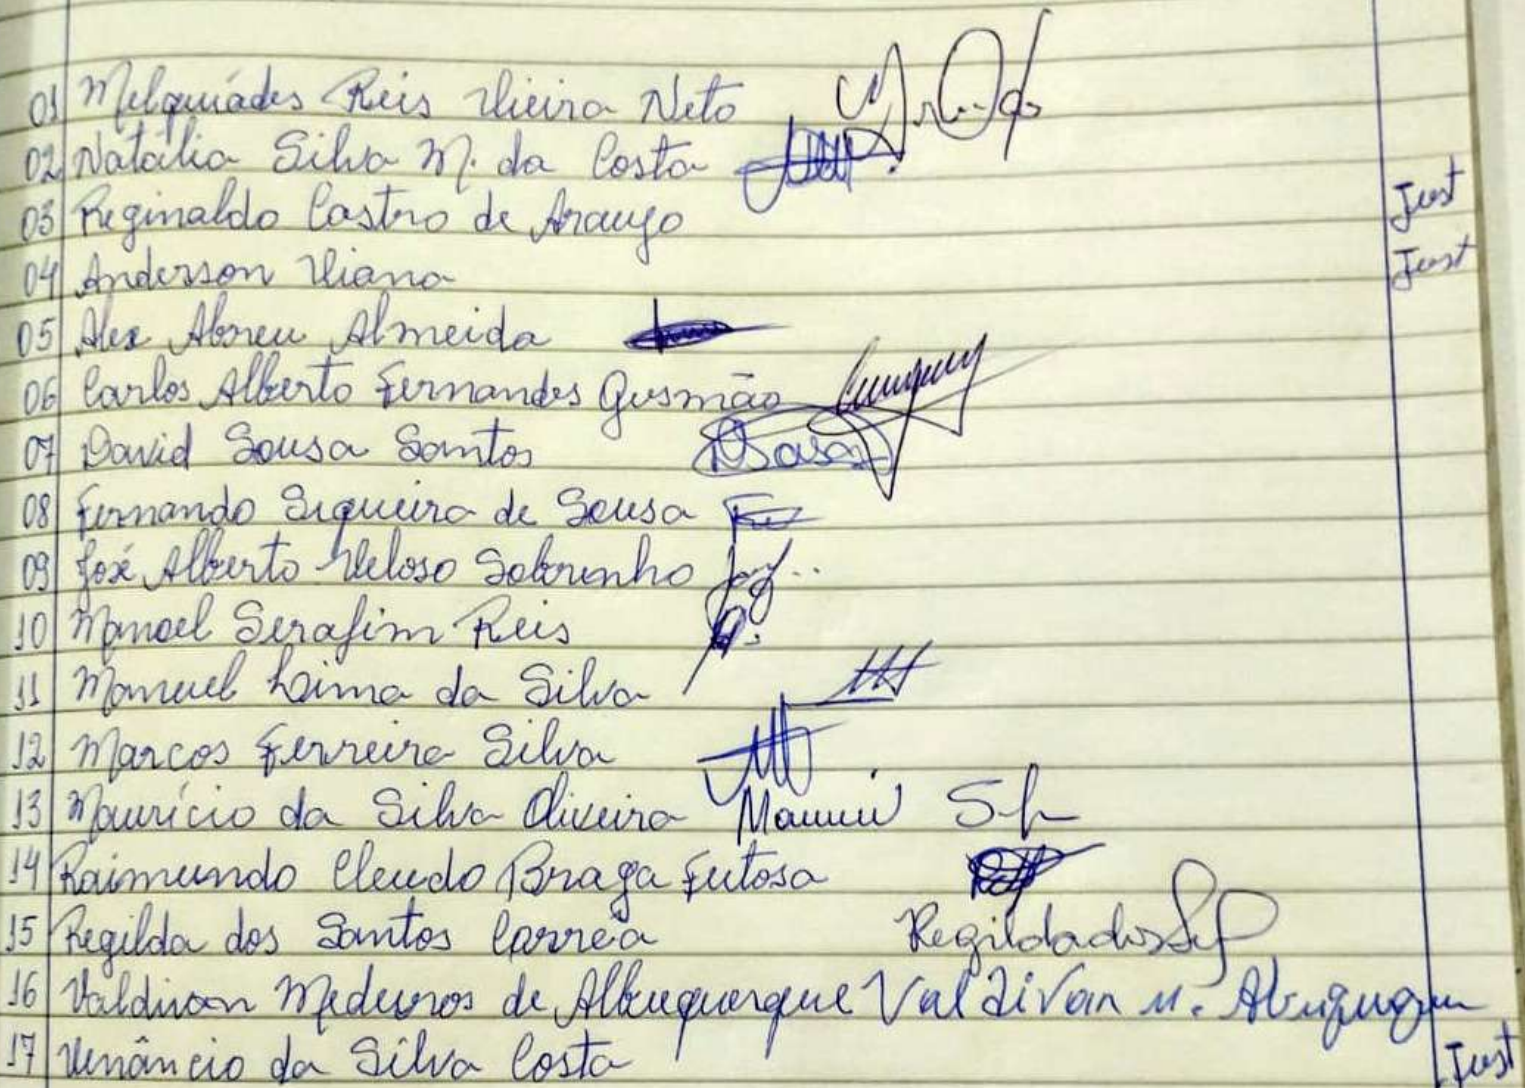 01 Melquiádes Reis Vieira Neto
02 Natália Silva M. da Costa
03 Reginaldo Castro de Araujo Just
04 Anderson Viana Just
05 Alex Abreu Almeida
06 Carlos Alberto Fernandes Gusmão
07 David Sousa Santos
08 Fernando Siqueira de Sousa
09 José Alberto Veloso Sobrinho
10 Manoel Serafim Reis
11 Manuel Lima da Silva
12 Marcos Ferreira Silva
13 Maurício da Silva Oliveira
14 Raimundo Cleudo Braga Futosa
15 Regilda dos Santos Corrêa Regilda dos
16 Valdivan Medeiros de Albuquerque Valdivan M.
17 Venâncio da Silva Costa Just